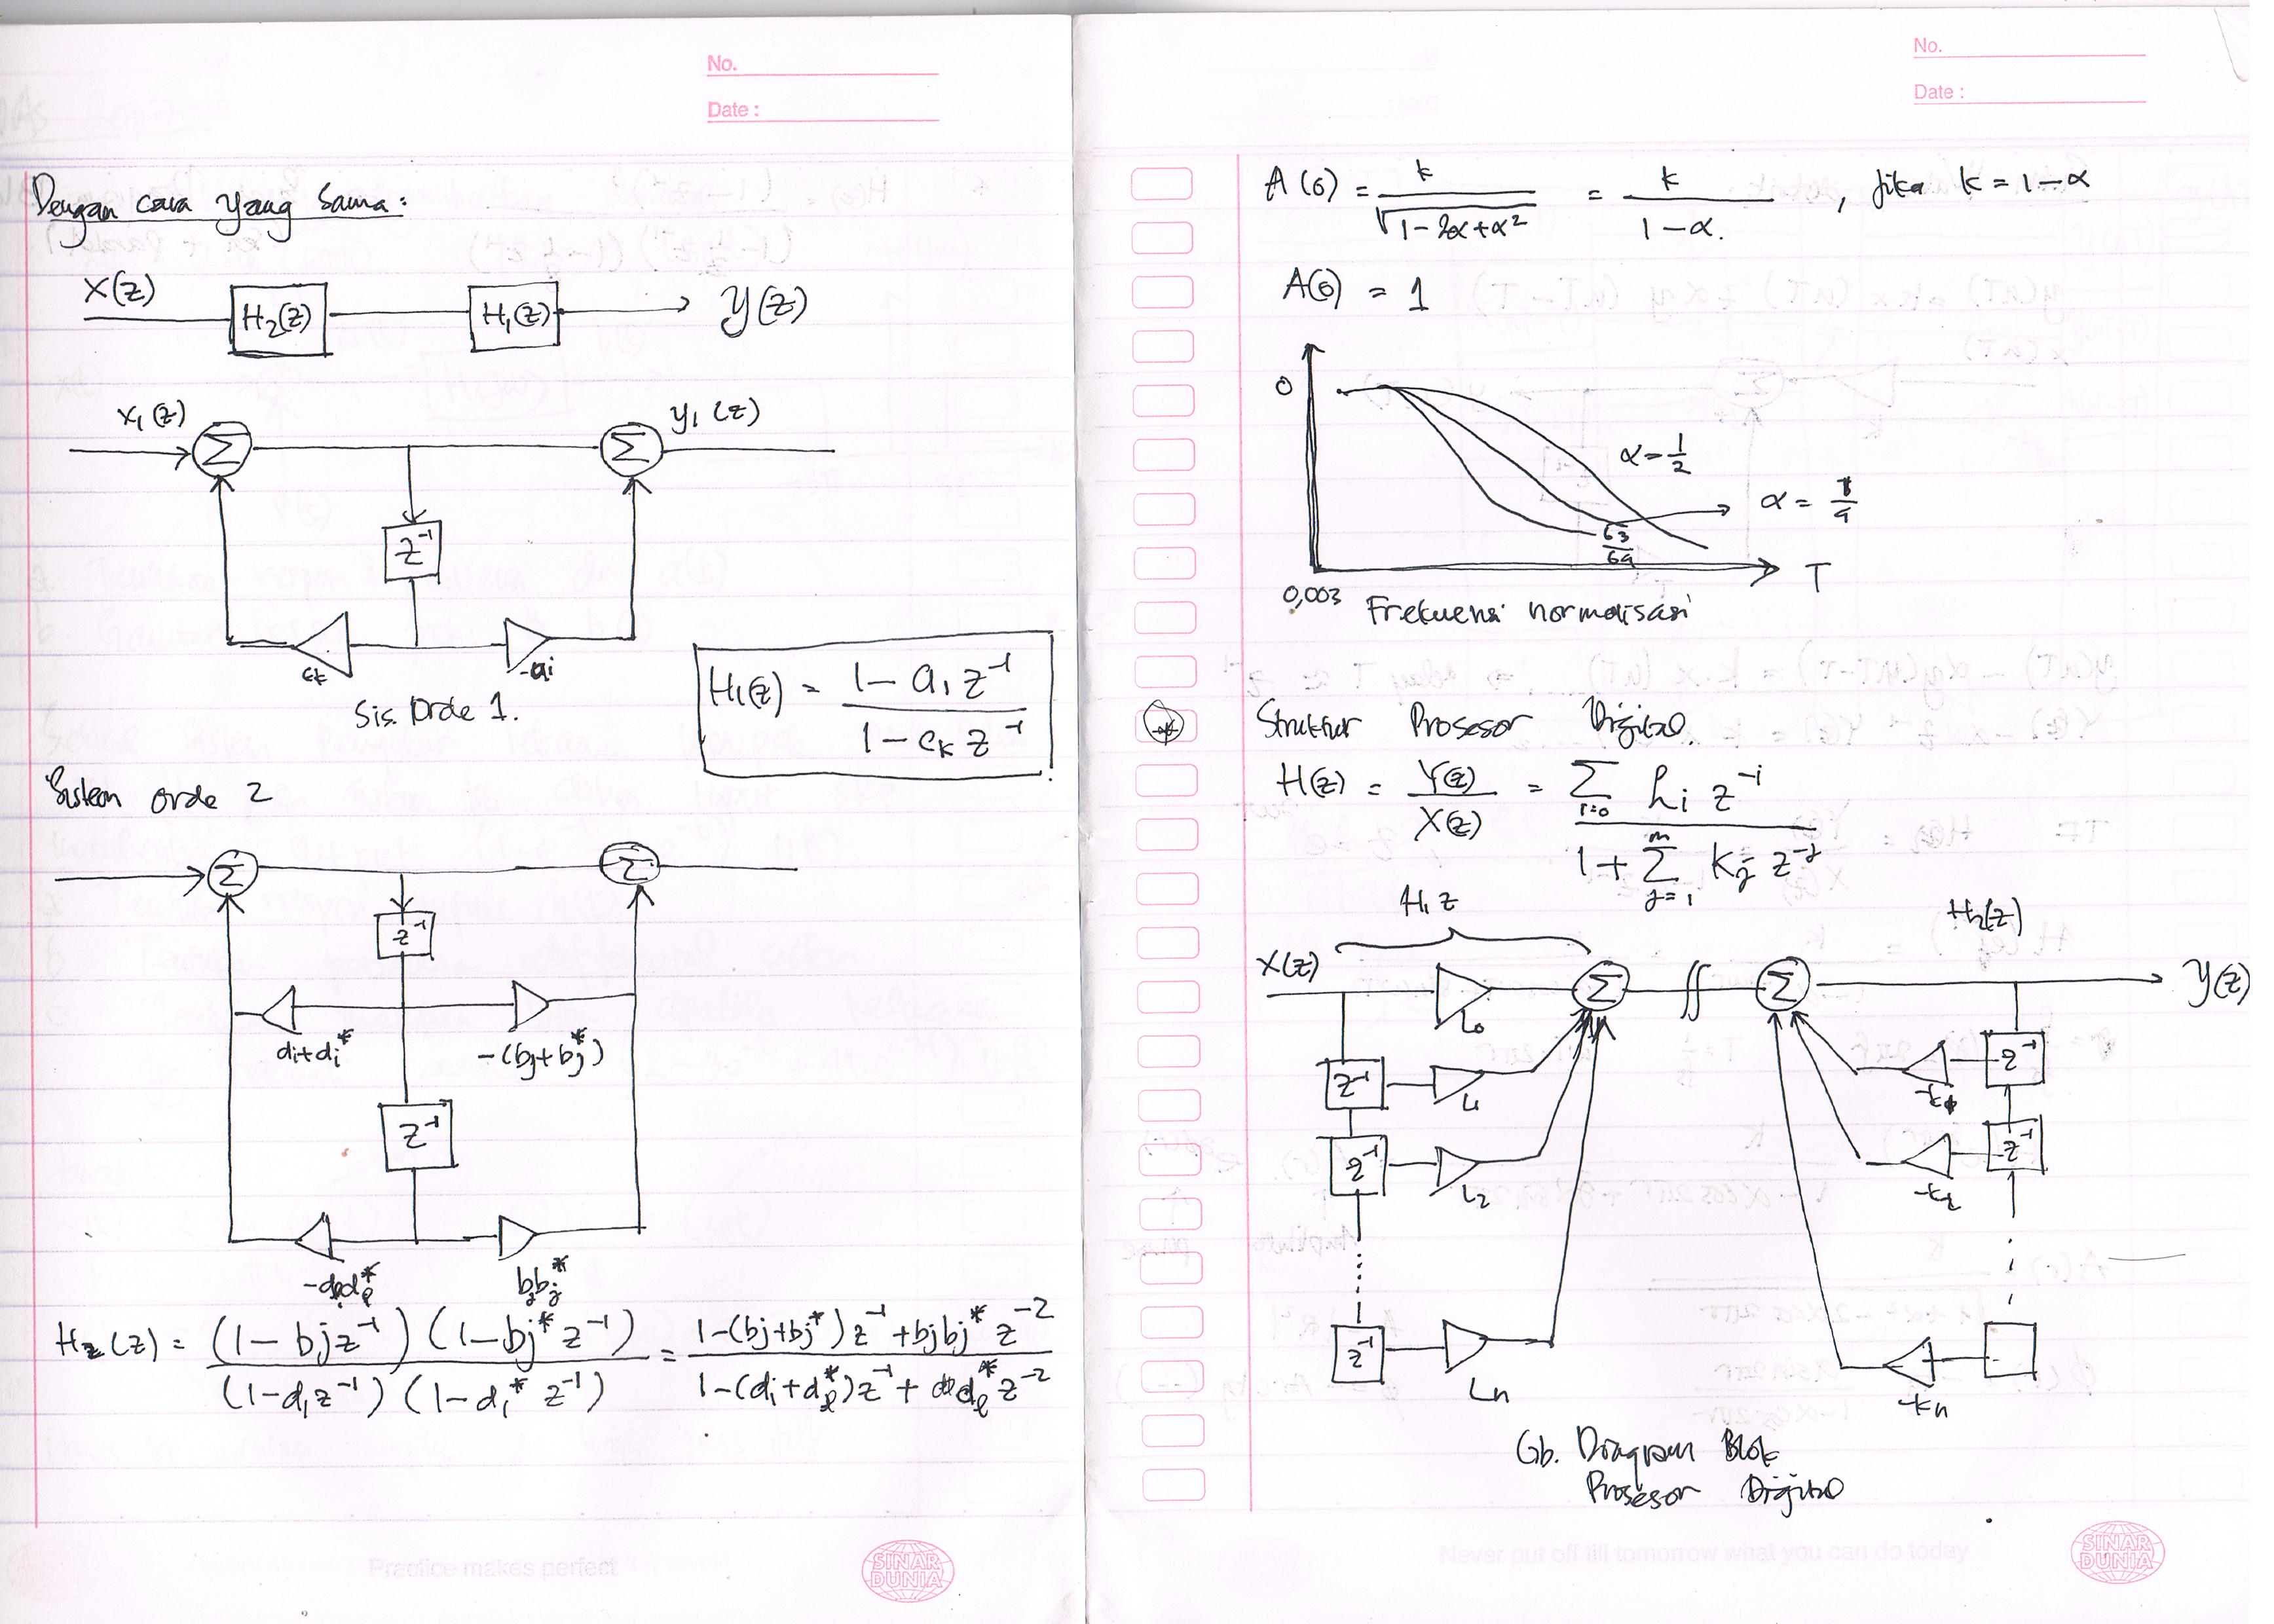 No.
Date :
Dengan cara yang sama :
X(z) H₂(z) H₁(z) Y(z)
x₁(z) Σ Σ y₁(z)
z⁻¹
ck -ai
Sis. Orde 1.
H₁(z) = (1 - a₁ z⁻¹) / (1 - cₖ z⁻¹)
Sistem orde 2
Σ Σ
z⁻¹
di+di* -(bj+bj*)
z⁻¹
bjbj*
H₂(z) = (1 - bjz⁻¹)(1 - bj* z⁻¹) / (1-diz⁻¹)(1-di* z⁻¹) = 1-(bj+bj*)z⁻¹+bjbj* z⁻² / 1-(di+dℓ*)z⁻¹+ dℓ* z⁻²
Practice makes perfect
SINAR DUNIA
No.
Date :
A(0) = k / √(1-2α+α²) = k / (1-α.) , jika k = 1-α
A(0) = 1
0
α=1/2
α =
63/64
T
0,003 Frekuensi normalisasi
Struktur Prosesor Digital.
H(z) = Y(z)/X(z) = Σ i=0 Li z⁻ⁱ / 1+ Σ m j=1 Kj z⁻ʲ
H₁z H₂(z)
X(z) Σ Σ Y(z)
L₀
z⁻¹ L₁ -k₁ z⁻¹
z⁻¹ L₂ -k₂ z⁻¹
z⁻¹ Ln -kn
Gb. Diagram Blok
Prosesor Digital
Never put off till tomorrow what you can do today
SINAR DUNIA